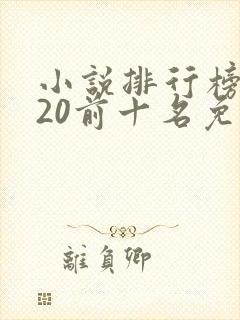 小說排行榜
20前十名免
離負卿